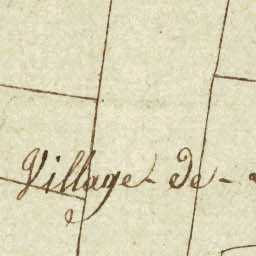 Village - de -